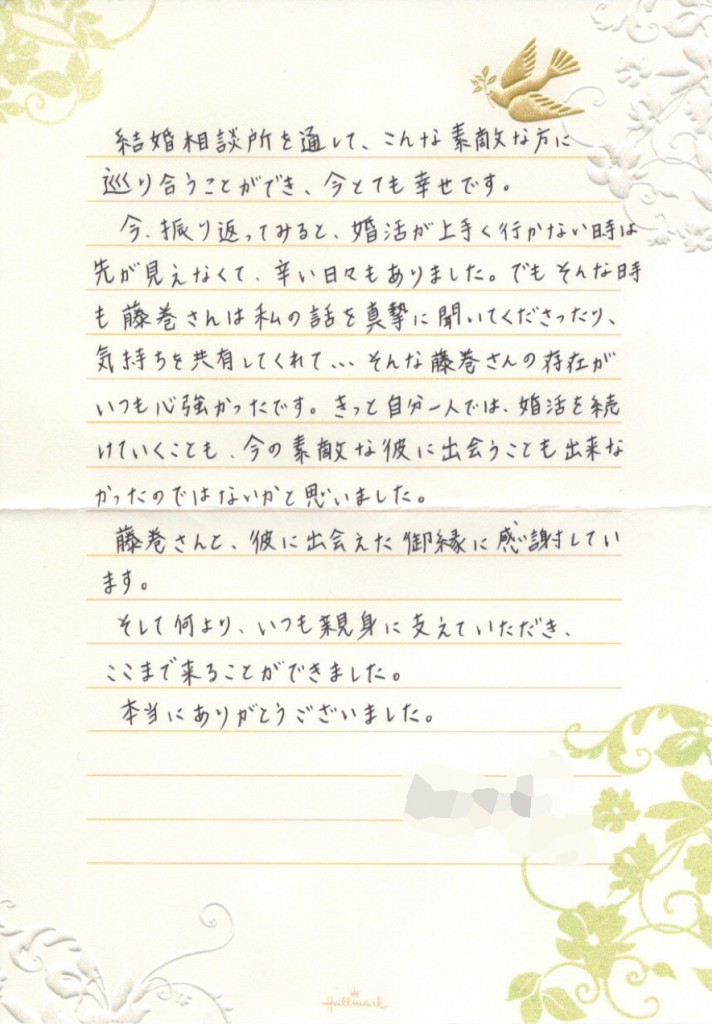 結婚相談所を通して、こんな素敵な方に
巡り合うことができ、今とても幸せです。
今、振り返ってみると、婚活が上手く行かない時は
先が見えなくて、辛い日々もありました。でもそんな時
も藤巻さんは私の話を真摯に聞いてくださったり、
気持ちを共有してくれて...そんな藤巻さんの存在が
いつも心強かったです。きっと自分一人では、婚活を続
けていくことも、今の素敵な彼に出会うことも出来な
かったのではないかと思いました。
藤巻さんと、彼に出会えた御縁に感謝してい
ます。
そして何より、いつも親身に支えていただき、
ここまで来ることができました。
本当にありがとうございました。
Hallmark